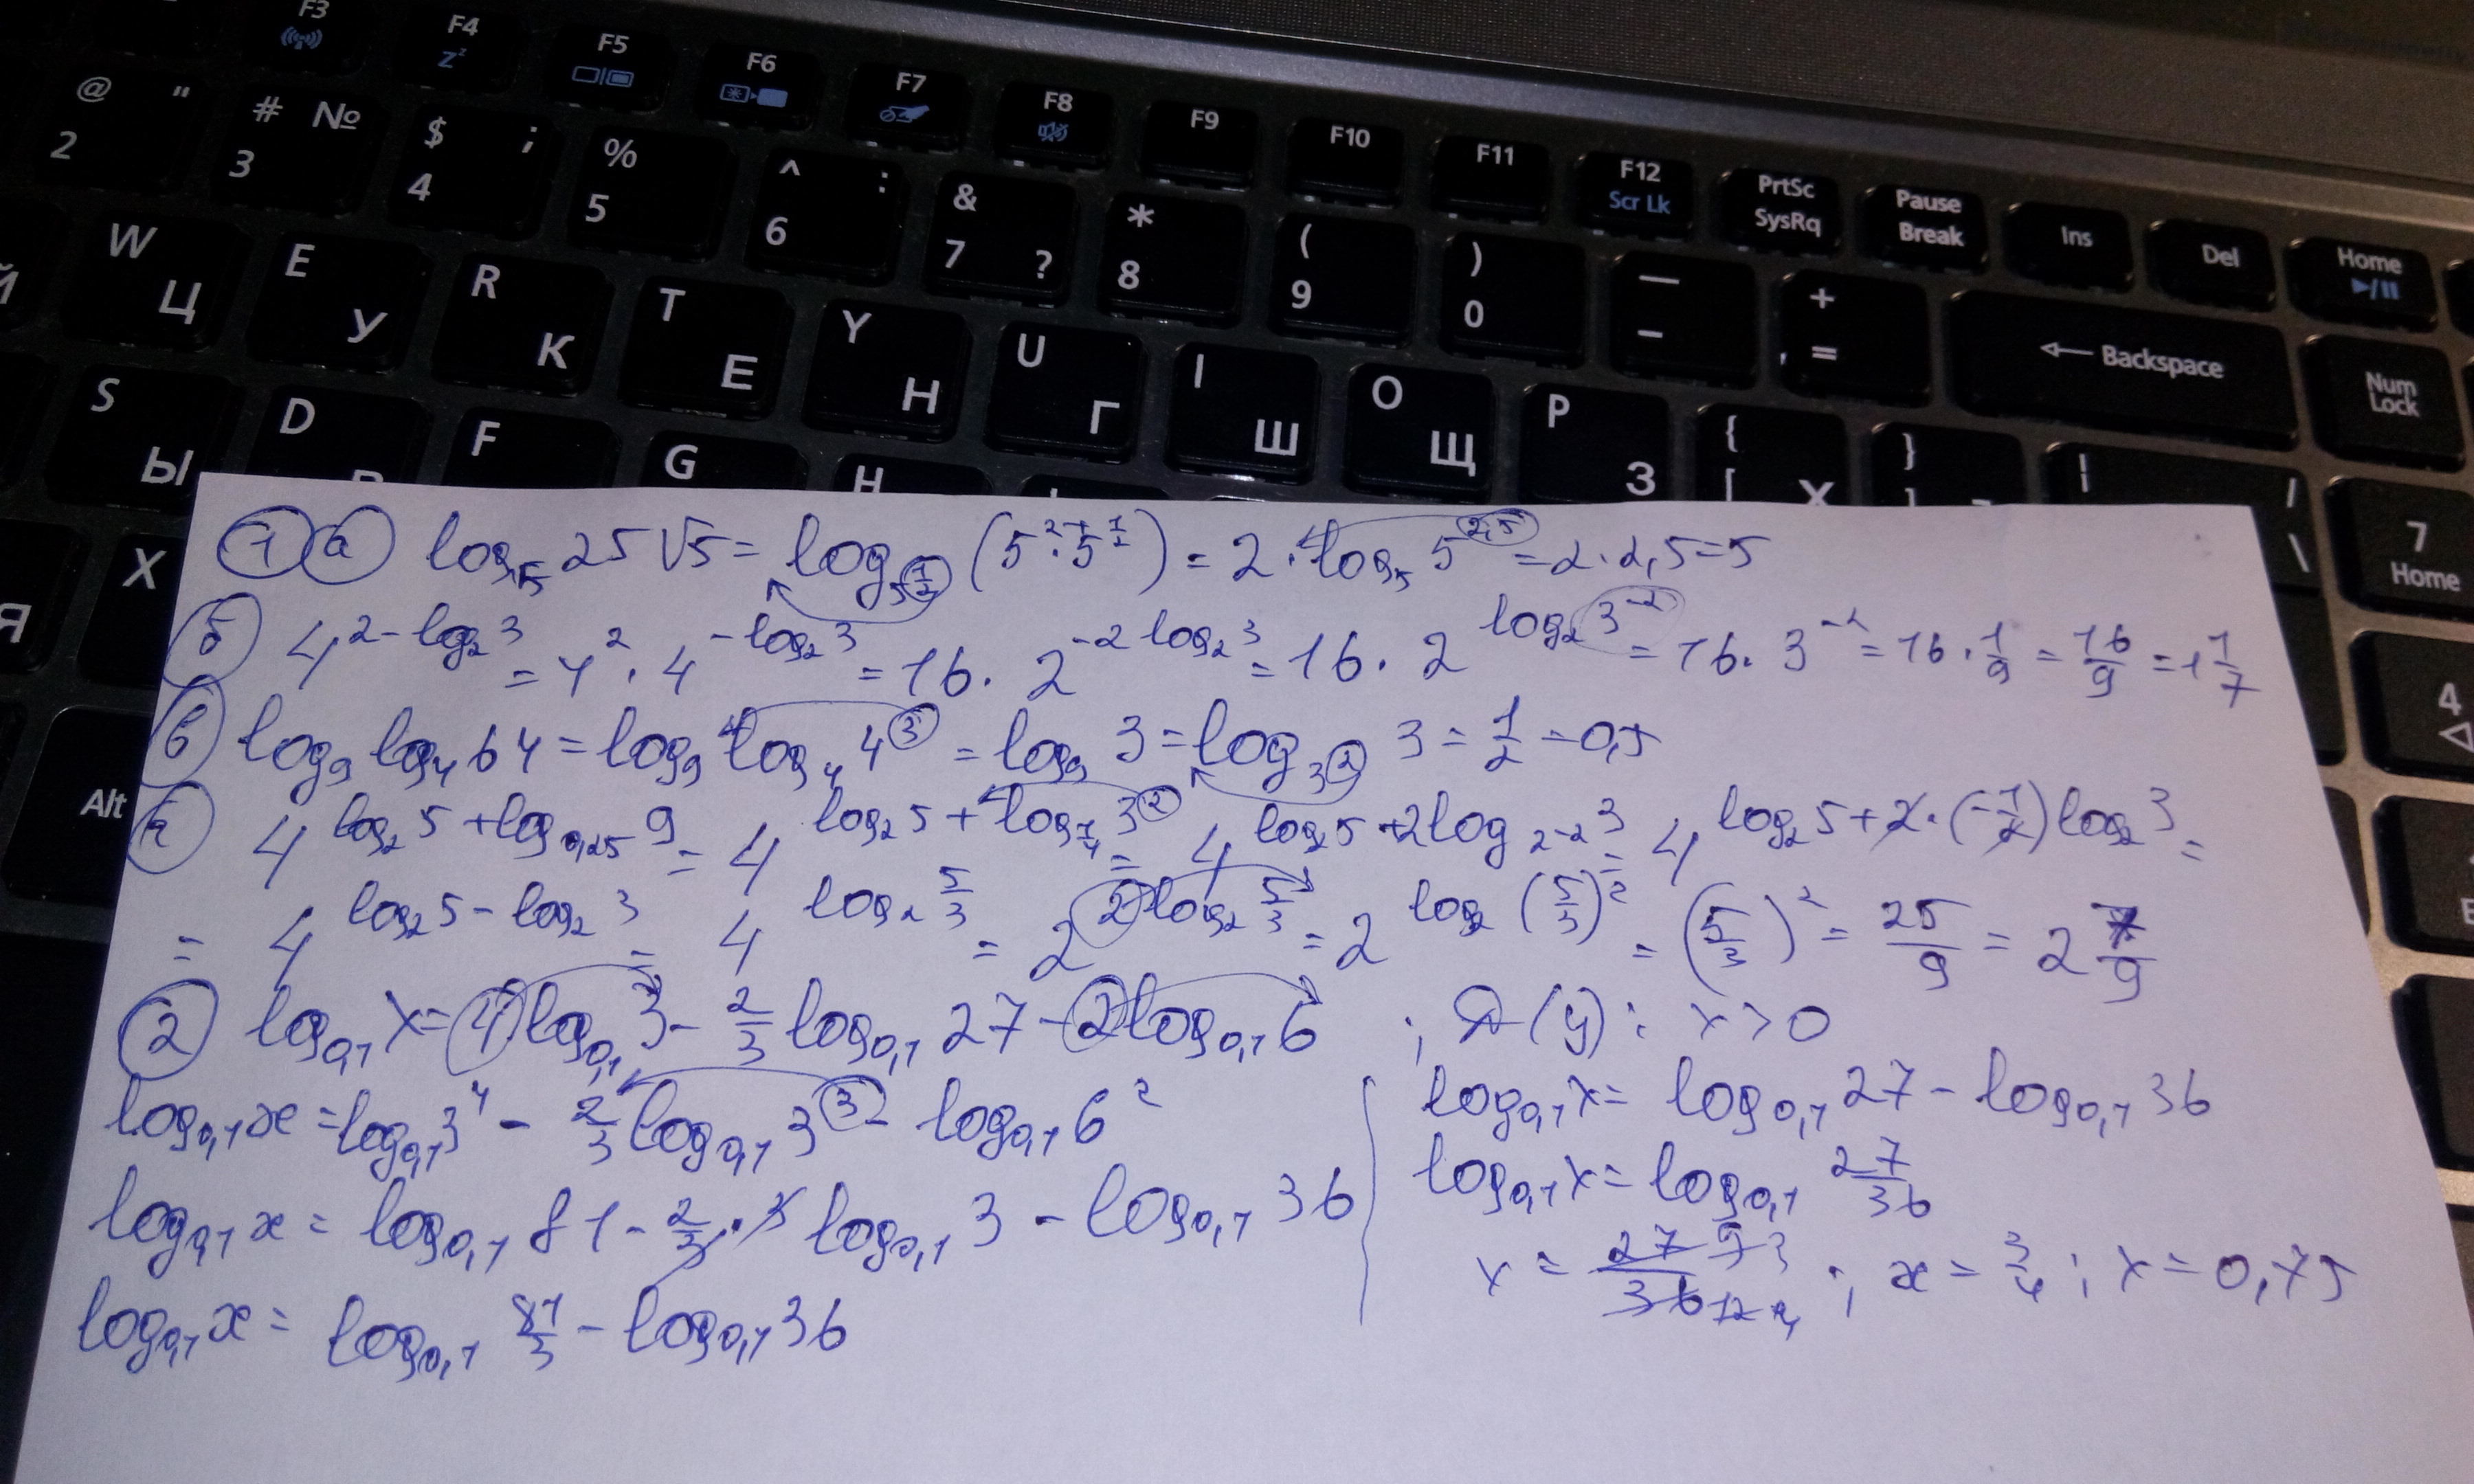 F3 F4 F5 F6 F7 F8 F9 F10 F11 F12 PrtSc Pause Ins Del Home
Zz Scr Lk SysRq Break
@ " # № $ ; % ^ : & * ( ) — +
2 3 4 5 6 7 ? 8 9 0 - = ← Backspace Num Lock
W E R T Y U I O P { } |
Й Ц У К Е Н Г Ш Щ З [ Х ] / \ 7 Home
S D F G H
Ы
X
Я
4
Alt
1 а log_√5 25√5 = log_5^(1/2) (5^2 · 5^(1/2)) = 2 · log_5 5^(2,5) = 2 · 2,5 = 5
б 4^(2-log_2 3) = 4^2 · 4^(-log_2 3) = 16 · 2^(-2 log_2 3) = 16 · 2^(log_2 3^(-2)) = 16 · 3^(-2) = 16 · 1/9 = 16/9 = 1 1/7
в log_9 log_4 64 = log_9 log_4 4^3 = log_9 3 = log_3^2 3 = 1/2 = 0,5
г 4^(log_2 5 + log_0,25 9) = 4^(log_2 5 + log_1/4 3^2) = 4^(log_2 5 + 2log_2^(-2) 3) = 4^(log_2 5 + 2 · (-1/2) log_2 3) =
= 4^(log_2 5 - log_2 3) = 4^(log_2 5/3) = 2^(2 log_2 5/3) = 2^(log_2 (5/3)^2) = (5/3)^2 = 25/9 = 2 7/9
2 log_0,1 x = 4 log_0,1 3 - 2/3 log_0,1 27 - 2 log_0,1 6 ; D(y) : x > 0
log_0,1 x = log_0,1 3^4 - 2/3 log_0,1 3^3 - log_0,1 6^2
log_0,1 x = log_0,1 81 - 2/3 · 3 log_0,1 3 - log_0,1 36
log_0,1 x = log_0,1 81/3 - log_0,1 36
log_0,1 x = log_0,1 27 - log_0,1 36
log_0,1 x = log_0,1 27/36
x = 27 9 3 / 36 12 4 ; x = 3/4 ; x = 0,75